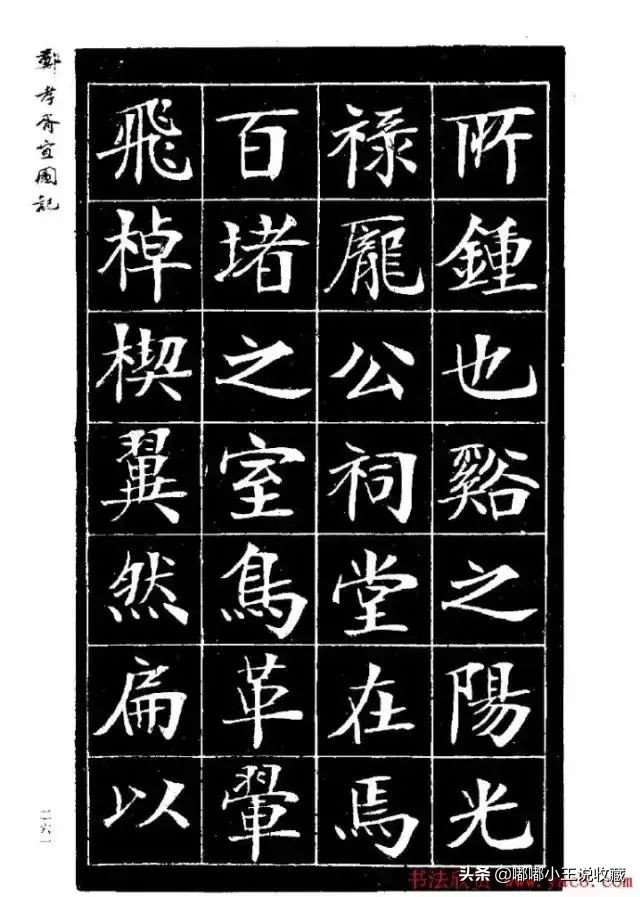 鄭孝胥宜園記
所鍾也谿之陽光
禄龎公祠堂在焉
百堵之室鳥革翬
飛棹楔翼然扁以
二六一
书法欣
头条 @嘟嘟小王说收藏